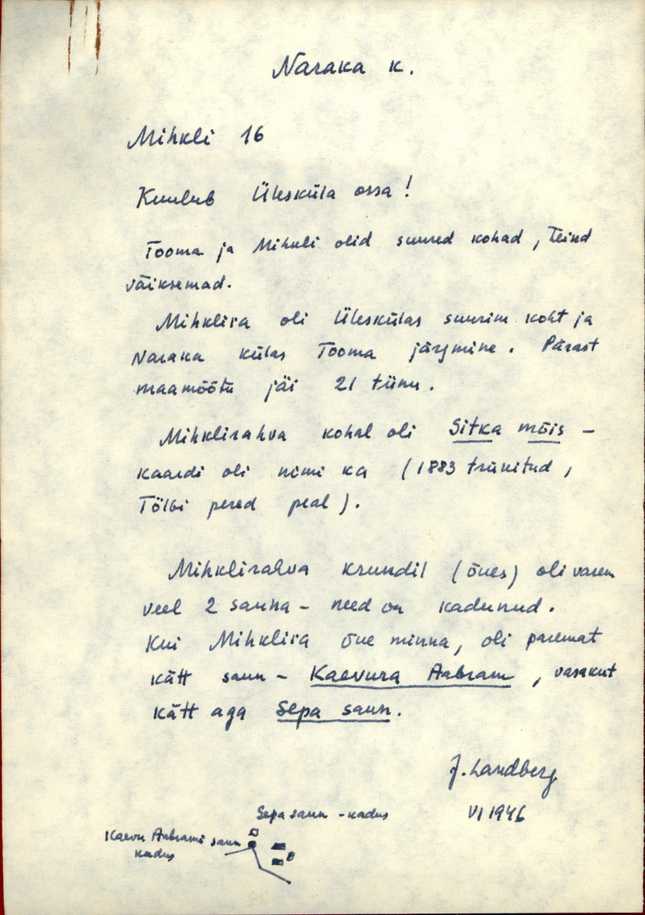 Naraka k.
Mihkli 16
Kuulub Ülesküla ossa!
Tooma ja Mihkli olid suured kohad, teised
väiksemad.
Mihklira oli Üleskülas suurim koht ja
Naraka külas Tooma järgmine. Pärast
maamõõtu jäi 21 tiinu.
Mihklirahva kohal oli Sitka mõis -
kaardi oli nimi ka (1883 trükitud,
Tölbi pered peal).
Mihklirahva krundil (õues) oli varem
veel 2 sauna - need on kadunud.
Kui Mihklira õue minna, oli paremat
kätt saun - Kaevura Aabram, vasakut
kätt aga Sepa saun.
J. Landberg
VI 1946
Sepa saun - kadus
Kaevu Aabrami saun
kadus